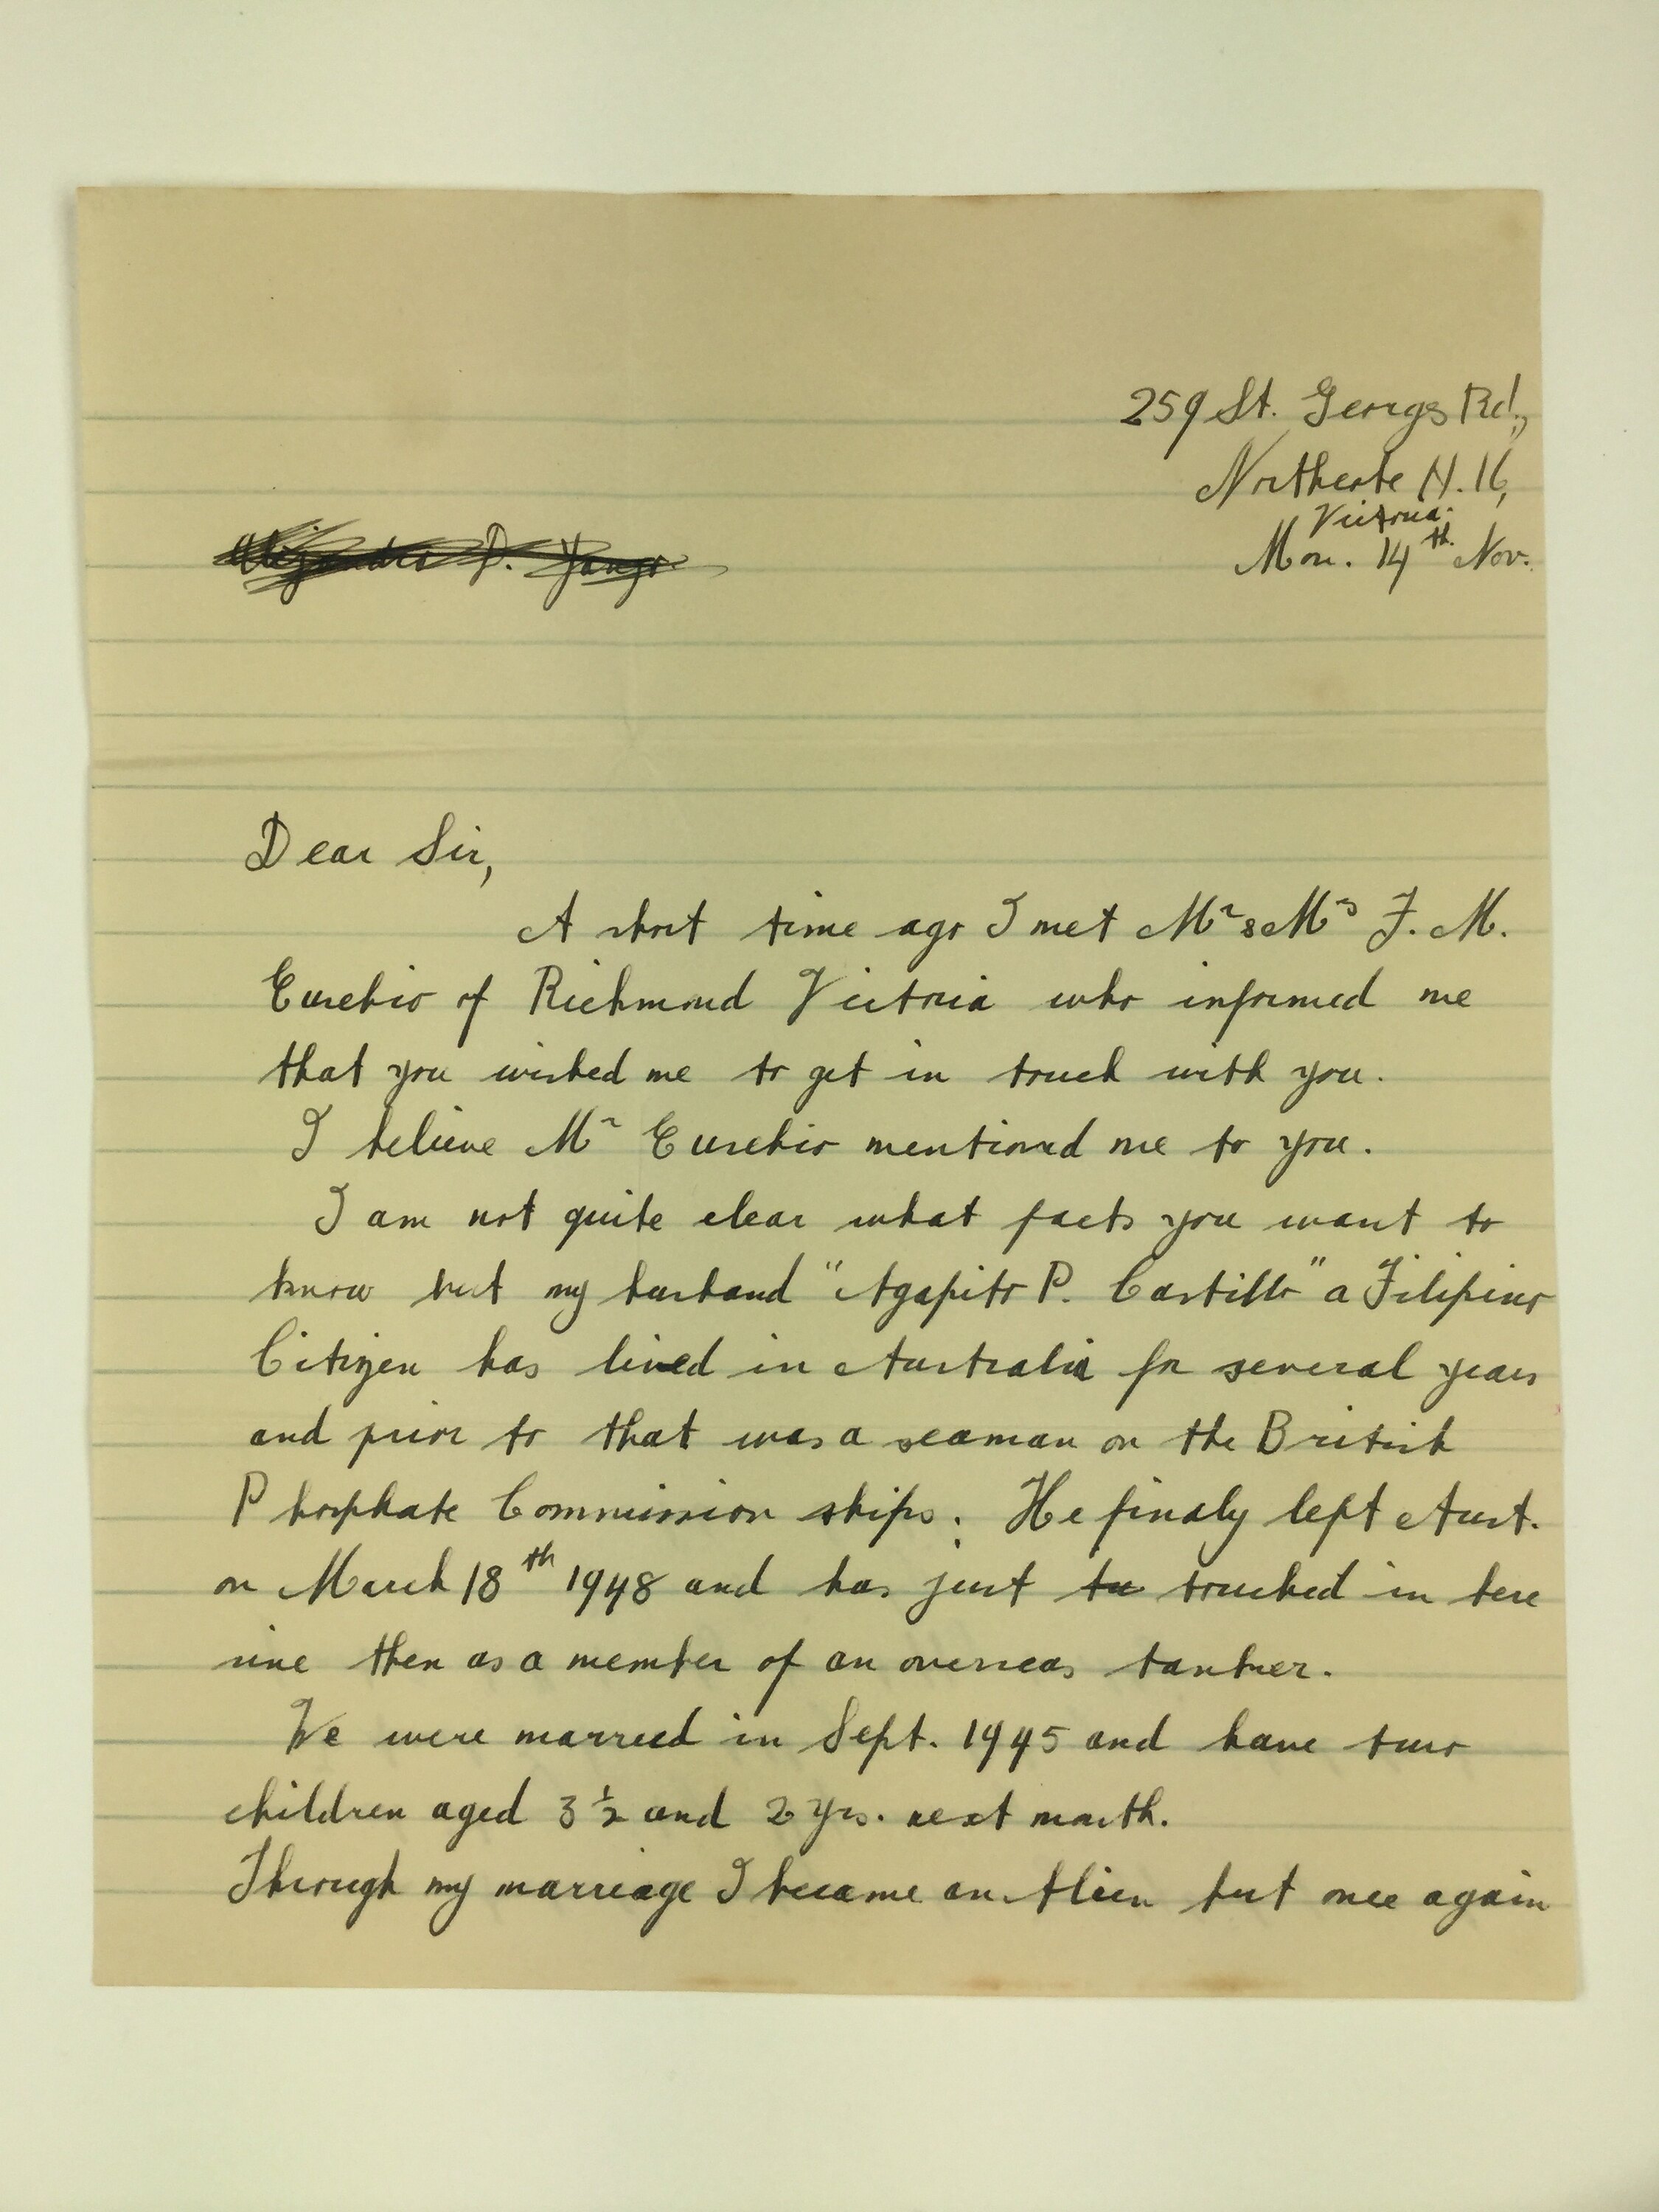 259 St. Georgs Rd.,
Northcote N.16,
Victoria.
Mon. 14th Nov.
P. Yango
Dear Sir,
A short time ago I met Mr & Mrs F. M.
Eusebio of Richmond Victoria who informed me
that you wished me to get in touch with you.
I believe Mr Eusebio mentioned me to you.
I am not quite clear what facts you want to
know but my husband "Agapito P. Castillo" a Filipino
Citizen has lived in Australia for several years
and prior to that was a seaman on the British
Phosphate Commission ships. He finaly left Aust.
on March 18th 1948 and has just to touched in here
sine then as a member of an overseas tanker.
We were married in Sept. 1945 and have two
children aged 3 ½ and 2 yrs. next month.
Through my marriage I became an Alien but once again